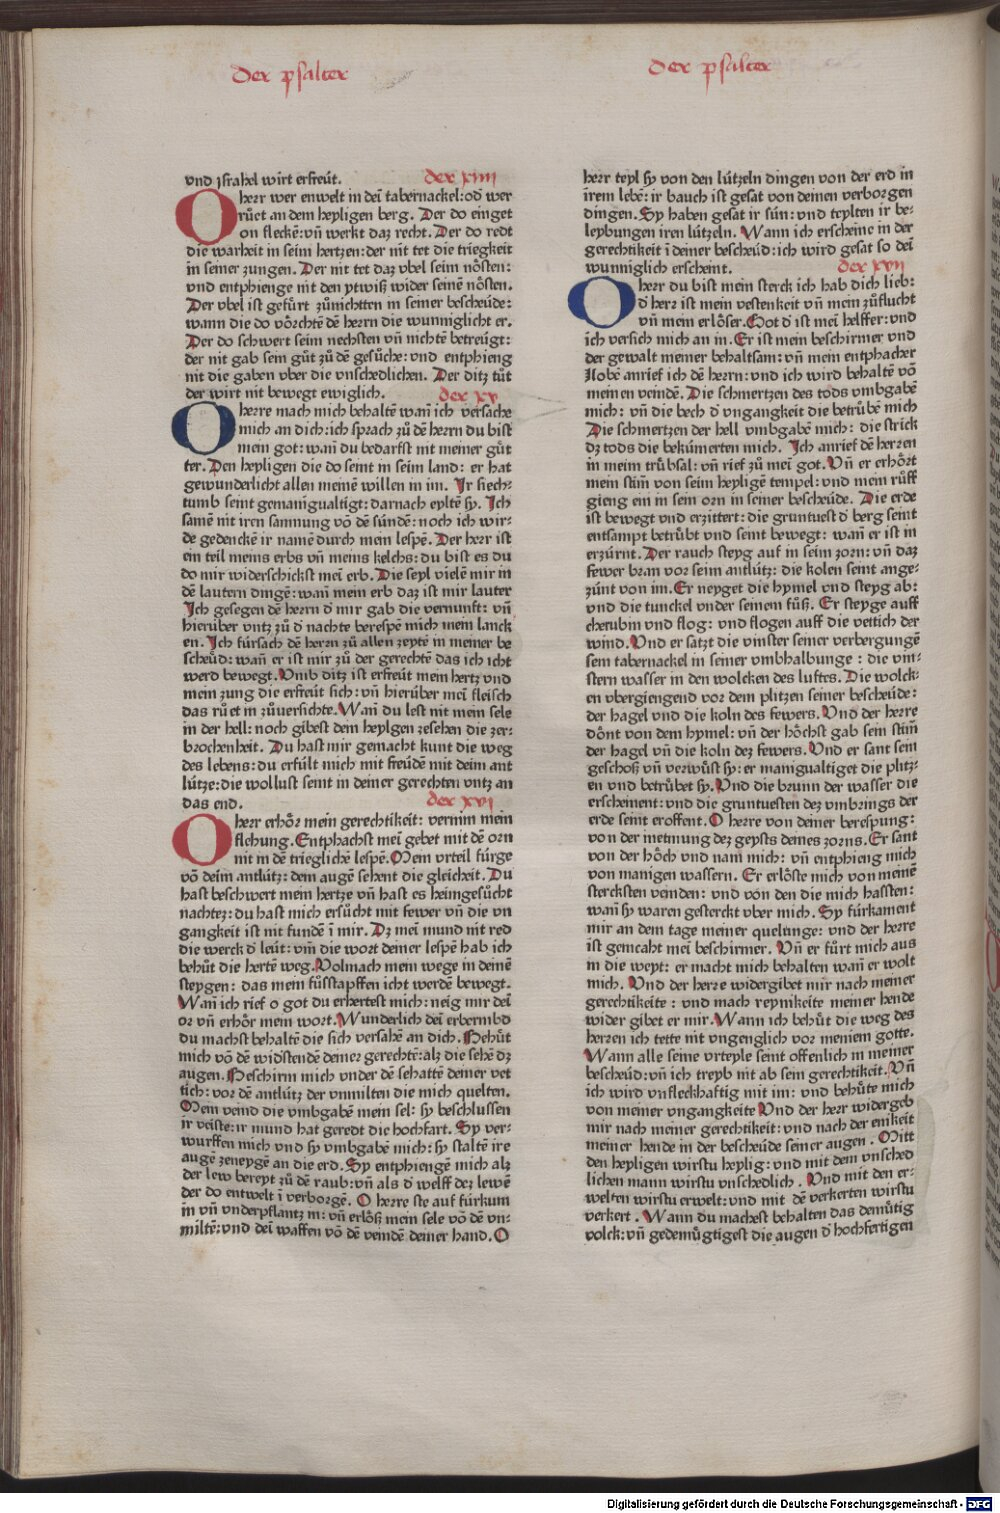 der psalter
der psalter
vnd jsrahel wirt erfreüt. der xiiii
O herr wer enwelt in deī tabernackel: od̄ wer
růet an dem heyligen berg. Der do einget
on fleckē: vn̄ werkt daz recht. Der do redt
die warheit in seim hertzen: der nit tet die triegkeit
in seiner zungen. Der nit tet daz vbel seim nösten:
vnd entphienge nit den ytwiß wider seinē nösten.
Der vbel ist gefůrt zůnichtten in seiner bescheüde:
wann die do vörchtē dē herrn die wunniglicht er.
Der do schwert seim nechsten vn̄ nichtē betreügt:
der nit gab sein gůt zů dē gesůche: vnd entphieng
nit die gaben vber die vnschedlichen. Der ditz tůt
der wirt nit bewegt ewiglich. der xv
O herre mach mich behaltē wan̄ ich versache
mich an dich: ich sprach zů dē herrn du bist
mein got: wan̄ du bedarfst nit meiner gůt
ter. Den heyligen die do seint in seim land: er hat
gewunderlicht allen meinē willen in im. Ir siech-
tumb seint gemanigualtigt: darnach eyltē sy. Ich
samē nit iren samnung vō dē sündē: noch ich wir-
de gedenckē ir namē durch mein lespē. Der herr ist
ein teil meins erbs vn̄ meins kelchs: du bist es du
do mir widerschickst meī erb. Die seyl vielē mir in
dē lautern dingē: wan̄ mein erb daz ist mir lauter
Ich gesegen dē herrn d̄ mir gab die vernunft: vn̄
hierüber vntz zů d̄ nachte berespē mich mein lanck
en. Ich fürsach dē herrn zů allen zeytē in meiner be
scheüd: wan̄ er ist mir zů der gerechtē das ich icht
werd bewegt. Vmb ditz ist erfreüt mein hertz vnd
mein zung die erfreüt sich: vn̄ hierüber meī fleisch
das růet in zůuersichte. Wan̄ du lest nit mein sele
in der hell: noch gibest dem heylgen zesehen die zer-
brochenheit. Du hast mir gemacht kunt die weg
des lebens: du erfült mich mit freüdē mit deim ant
lütze: die wollust seint in deiner gerechten vntz an
das end. der xvi
O herr erhör mein gerechtikeit: vernim mein
flehung. Entphachst meī gebet mit dē orn
nit in dē trieglichē lespē. Mein vrteil fürge
vō deim antlütz: dem augē sehent die gleicheit. Du
hast beschwert mein hertze vn̄ hast es heimgesůcht
nachtez: du hast mich ersůcht mit fewer vn̄ die vn
gangkeit ist nit fundē ī mir. Dz meī mund nit red
die werck d̄ leüt: vm̄ die wort deiner lespē hab ich
behůt die hertē weg. Volmach mein wege in deinē
steygen: das mein fůsstapffen icht werdē bewegt.
Wan̄ ich rief o got du erhertest mich: neig mir deī
or vn̄ erhör mein wort. Wunderlich deī erbermbd
du machst behaltē die sich versahē an dich. Behůt
mich vō dē widstendē deiner gerechtē: alz die sehē dz
augen. Beschirm mich vnder dē schattē deiner vet
tich: vor dē antlütz der vnmilten die mich quelten.
Mein veind die vmbgabē mein sel: sy beschlussen
ir veiste: ir mund hat geredt die hochfart. Sy ver-
wurffen mich vnd sy vmbgabē mich: sy staltē ire
augē zeneygē an die erd. Sy entphiengē mich alz
der lew bereyt zů dē raub: vn̄ als d̄ welff dez lewē
der do entwelt ī verborgē. O herre ste auf fürkum
in vn̄ vnderpflantz in: vn̄ erlöß mein sele vō dē vn-
miltē: vnd deī waffen vō dē veindē deiner hand. O
herr teyl sy von den lützeln dingen von der erd in
irem lebē: ir bauch ist gesat von deinen verborgen
dingen. Sy haben gesat ir sün: vnd teylten ir be-
leybungen iren lützeln. Wann ich erscheine in der
gerechtikeit ī deiner bescheüd: ich wird gesat so deī
wunniglich erscheint. der xvii
O herr du bist mein sterck ich hab dich lieb:
d̄ herr ist mein vestenkeit vn̄ mein zůflucht
vn̄ mein erlöser. Got d̄ ist meī helffer: vnd
ich versich mich an in. Er ist mein beschirmer vnd
der gewalt meiner behaltsam: vn̄ mein entphacher
Ilobē anrief ich dē herrn: vnd ich wird behaltē vō
meinen veindē. Die schmertzen des tods vmbgabē
mich: vn̄ die bech d̄ vngangkeit die betrübē mich
Die schmertzen der hell vmbgabē mich: die strick
dz tods die bekümerten mich. Ich anrief dē herren
in meim trübsal: vn̄ rief zů meī got. Vn̄ er erhört
mein stim̄ von seim heyligē tempel: vnd mein růff
gieng ein in sein orn in seiner bescheüde. Die erde
ist bewegt vnd erzittert: die gruntuest d̄ berg seint
entsampt betrübt vnd seint bewegt: wan̄ er ist in
erzürnt. Der rauch steyg auf in seim zorn: vn̄ daz
fewer bran vor seim antlütz: die kolen seint ange-
zünt von im. Er neyget die hymel vnd steyg ab:
vnd die tunckel vnder seinem fůß. Er steyge auff
cherubin vnd flog: vnd flogen auff die vettich der
wind. Vnd er satzt die vinster seiner verbergungē
sein tabernackel in seiner vmbhalbunge: die vin-
stern wasser in den wolcken des luftes. Die wolck-
en vbergiengend vor dem plitzen seiner bescheüde:
der hagel vnd die koln des fewers. Vnd der herre
dönt von dem hymel: vn̄ der höchst gab sein stim̄
der hagel vn̄ die koln dez fewers. Vnd er sant sein
geschoß vn̄ verwůst sy: er manigualtiget die plitz-
en vnd betrübet sy. Vnd die brunn der wasser die
erscheinent: vnd die gruntuesten dez vmbrings der
erde seint eroffent. O herre von deiner berespung:
von der inetmung dez geysts deines zorns. Er sant
von der höch vnd nam mich: vn̄ entphieng mich
von manigen wassern. Er erlöste mich von meinē
stercksten veinden: vnd von den die mich hassten:
wan̄ sy waren gesterckt vber mich. Sy fürkament
mir an dem tage meiner quelunge: vnd der herre
ist gemcaht meī beschirmer. Vn̄ er fůrt mich aus
in die weyt: er macht mich behalten wan̄ er wolt
mich. Vnd der herre widergibet mir nach meiner
gerechtikeite: vnd nach reynikeite meiner hende
wider gibet er mir. Wann ich behůt die weg des
herren ich tette nit vngenglich vor meniem gotte.
Wann alle seine vrteyle seint offenlich in meiner
bescheüd: vn̄ ich treyb nit ab sein gerechtikeit. Vn̄
ich wird vnfleckhaftig mit im: vnd behůte mich
von meiner vngangkeite Vnd der herr widergeb
mir nach meiner gerechtikeit: vnd nach der einkeit
meiner hende in der bescheüde seiner augen. Mitt
den heyligen wirstu heylig: vnd mit dem vnsched
lichen mann wirstu vnschedlich. Vnd mit den er-
welten wirstu erwelt: vnd mit dē verkerten wirstu
verkert. Wann du machest behalten das demütig
volck: vn̄ gedemügtigest die augen d̄ hochfertigen
Digitalisierung gefördert durch die Deutsche Forschungsgemeinschaft - DFG